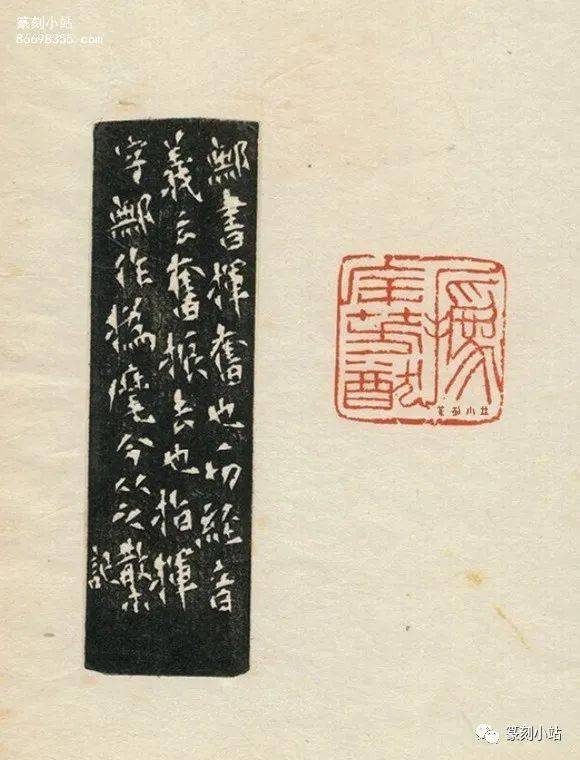 篆刻小站
86698355.com
鄦書揮奮也一切經音
義云奮振去也指揮
字鄦作撝麾今从之散木
記
篆刻小站
篆刻小站